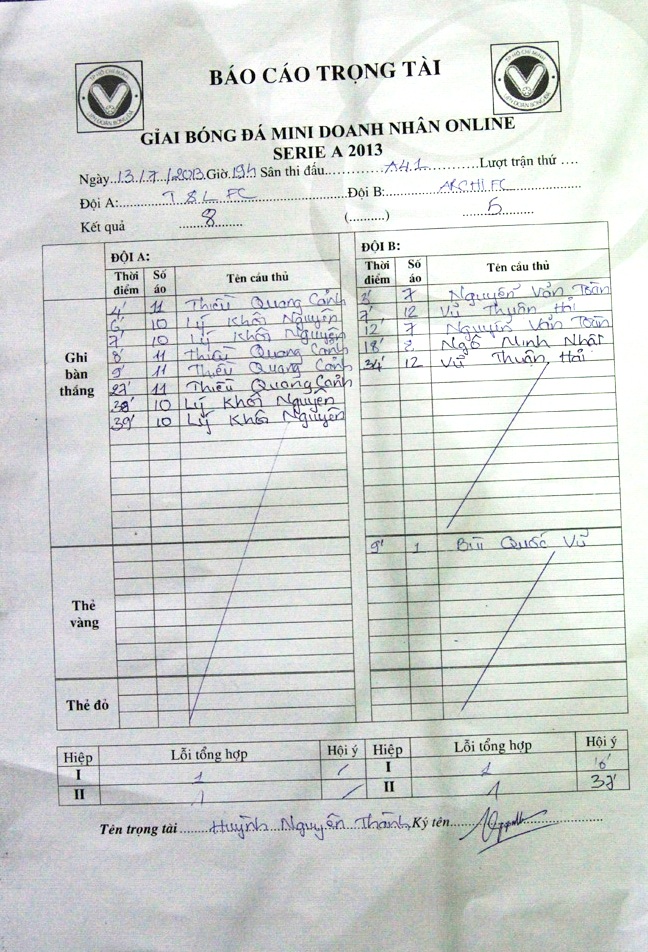 BÁO CÁO TRỌNG TÀI
GIẢI BÓNG ĐÁ MINI DOANH NHÂN ONLINE
SERIE A 2013
Ngày 13/7/2013 Giờ 19h Sân thi đấu A41 Lượt trận thứ ....
Đội A: T&L FC Đội B: ARCHI FC
Kết quả 8 (..........) 5
ĐỘI A: ĐỘI B:
Thời điểm Số áo Tên cầu thủ Thời điểm Số áo Tên cầu thủ
Ghi bàn thắng
4' 11 Thiều Quang Cảnh 3' 7 Nguyễn Văn Toàn
6' 10 Lý Khôi Nguyên 7' 12 Vũ Thuận Hải
7' 10 Lý Khôi Nguyên 12' 7 Nguyễn Văn Toàn
8' 11 Thiều Quang Cảnh 18' 2 Ngô Minh Nhật
9' 11 Thiều Quang Cảnh 34' 12 Vũ Thuận Hải
27' 11 Thiều Quang Cảnh
38' 10 Lý Khôi Nguyên
39' 10 Lý Khôi Nguyên
Thẻ vàng
9' 1 Bùi Quốc Vũ
Thẻ đỏ
Hiệp Lỗi tổng hợp Hội ý Hiệp Lỗi tổng hợp Hội ý
I 1 / I 2
II 1 / II 1 37'
Tên trọng tài Huỳnh Nguyên Thành Ký tên